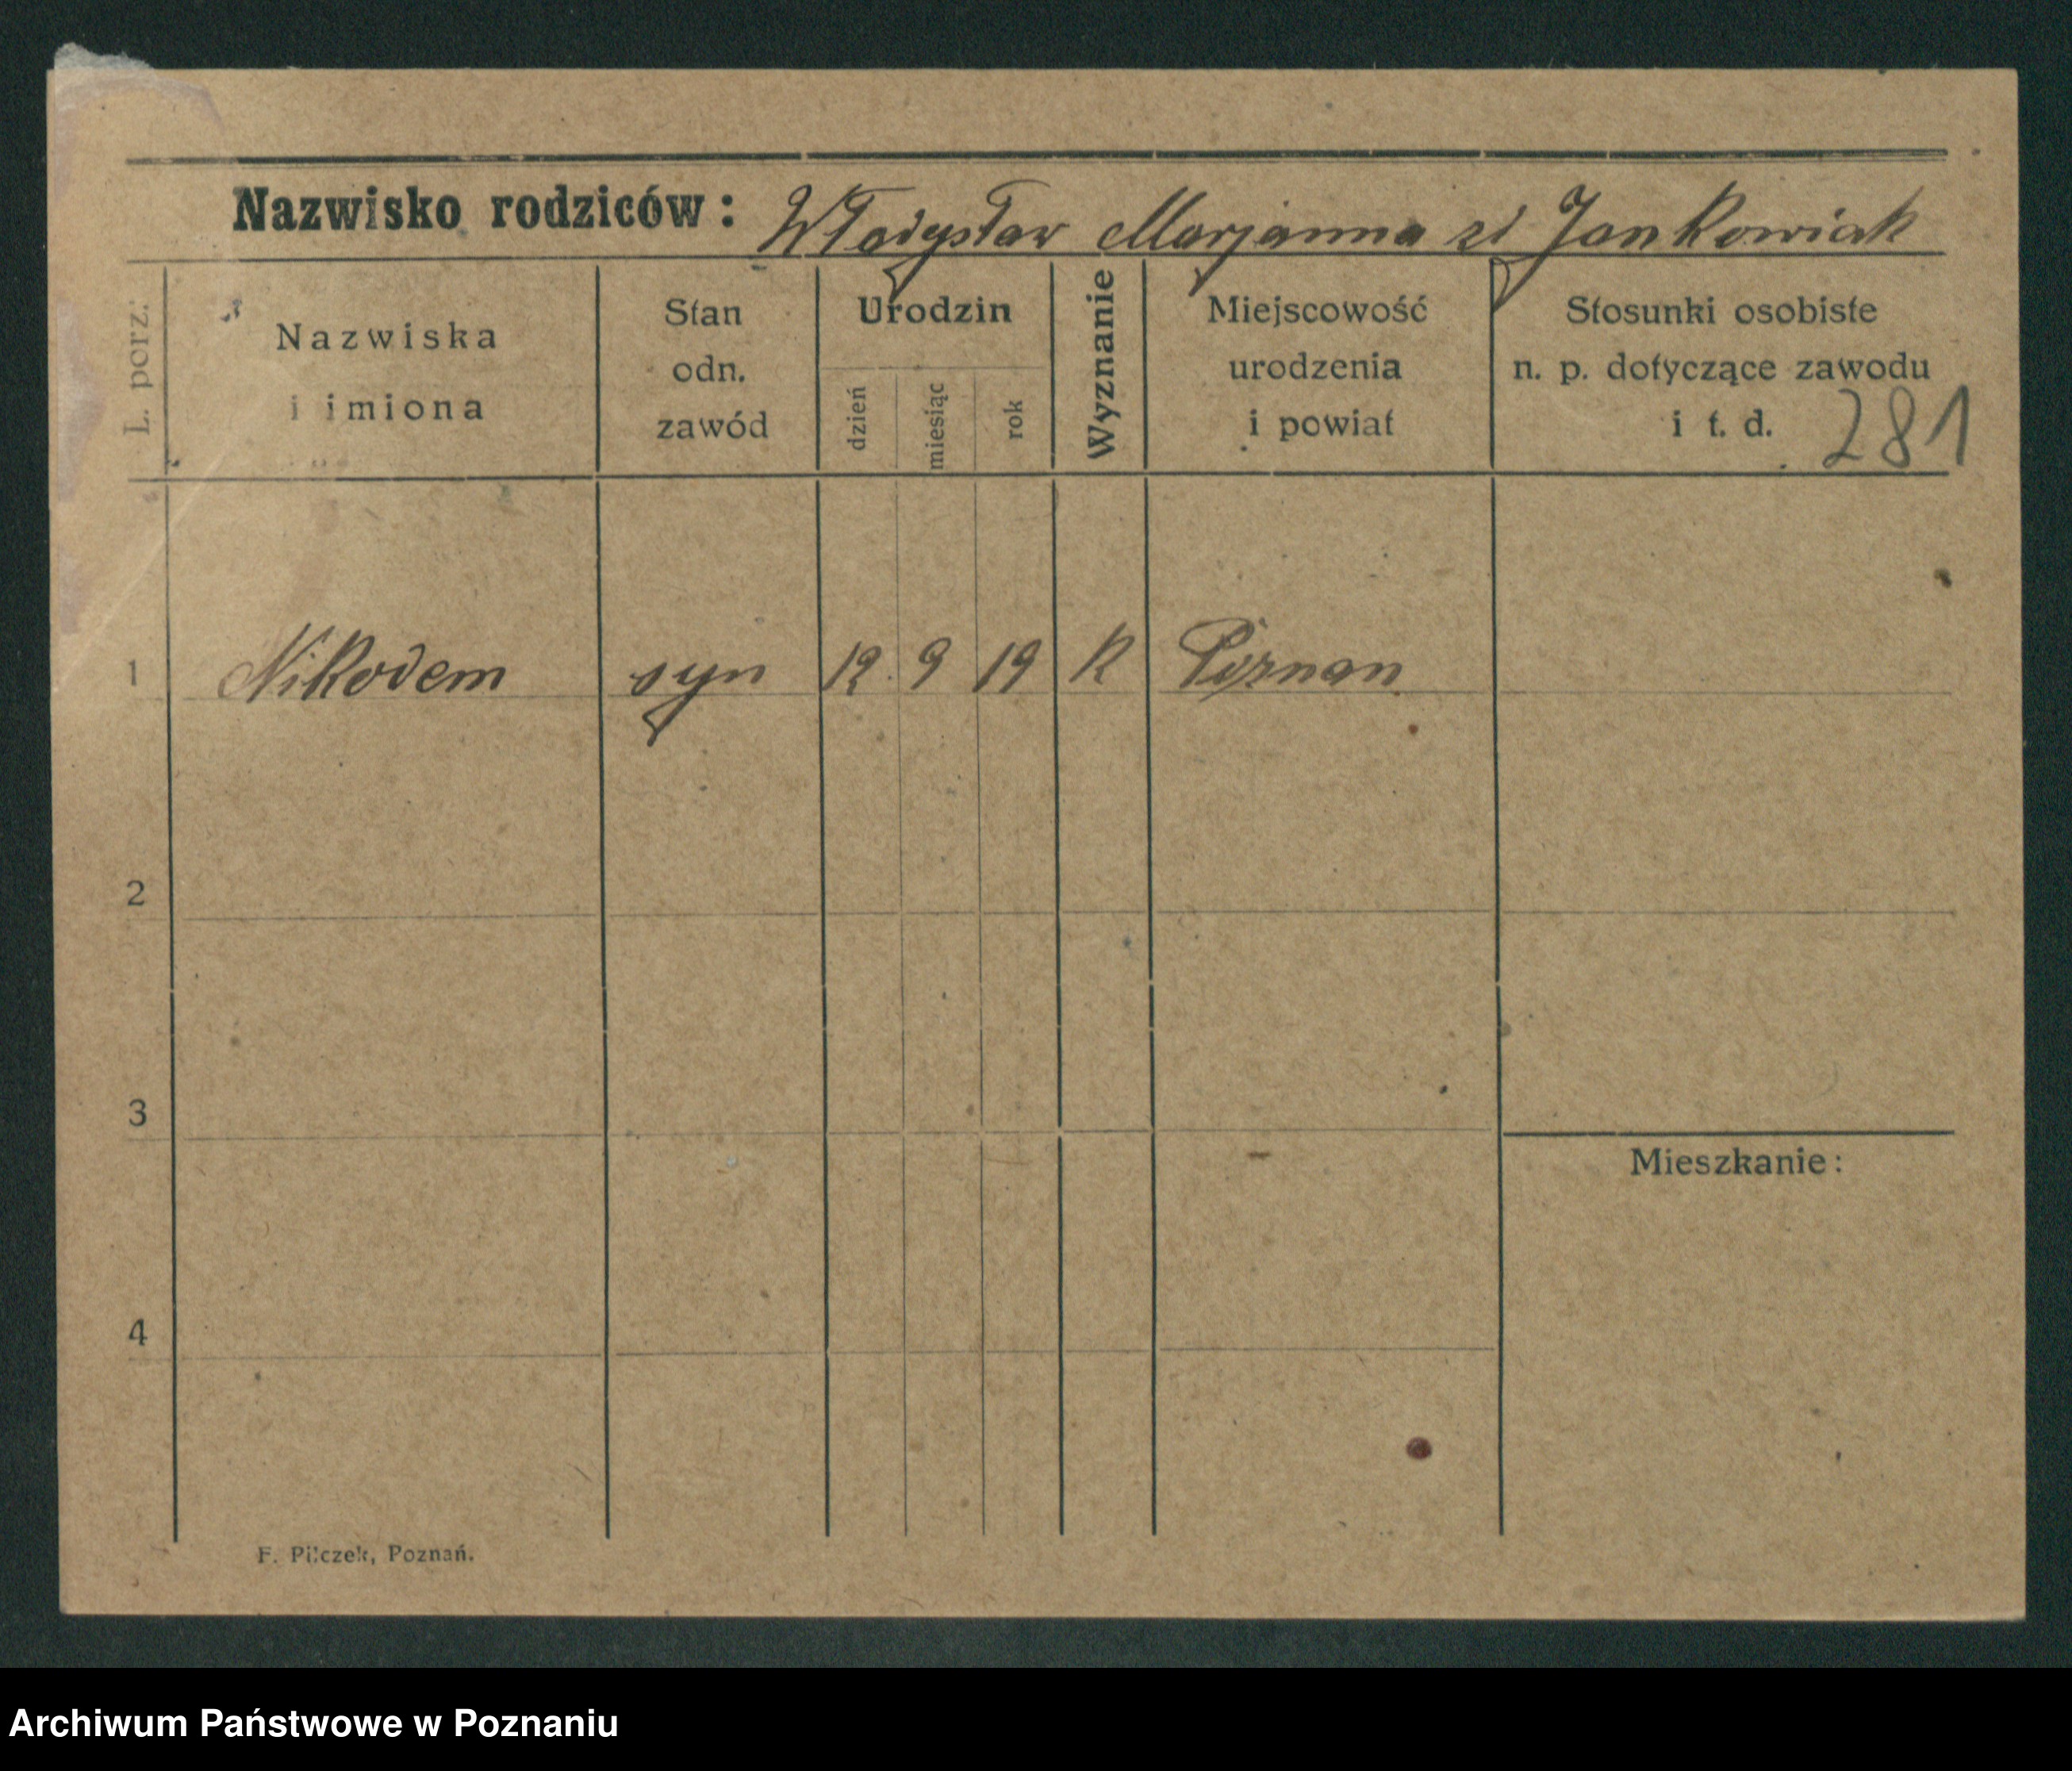 Nazwisko rodziców: Władysław Marjanna zd Jankowiak
L. porz.
Nazwiska
i imiona
Stan
odn.
zawód
Urodzin
dzień
miesiąc
rok
Wyznanie
Miejscowość
urodzenia
i powiat
Stosunki osobiste
n. p. dotyczące zawodu
i t. d. 281
1 Nikodem syn 12. 9 19 K Poznan
2
3
Mieszkanie:
4
F. Pilczek, Poznań.
Archiwum Państwowe w Poznaniu